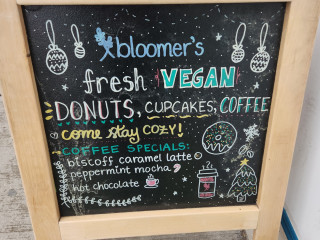 bloomer's
fresh VEGAN
DONUTS, CUPCAKES, COFFEE
come stay cozy!
COFFEE SPECIALS:
biscoff caramel latte
peppermint mocha
hot chocolate